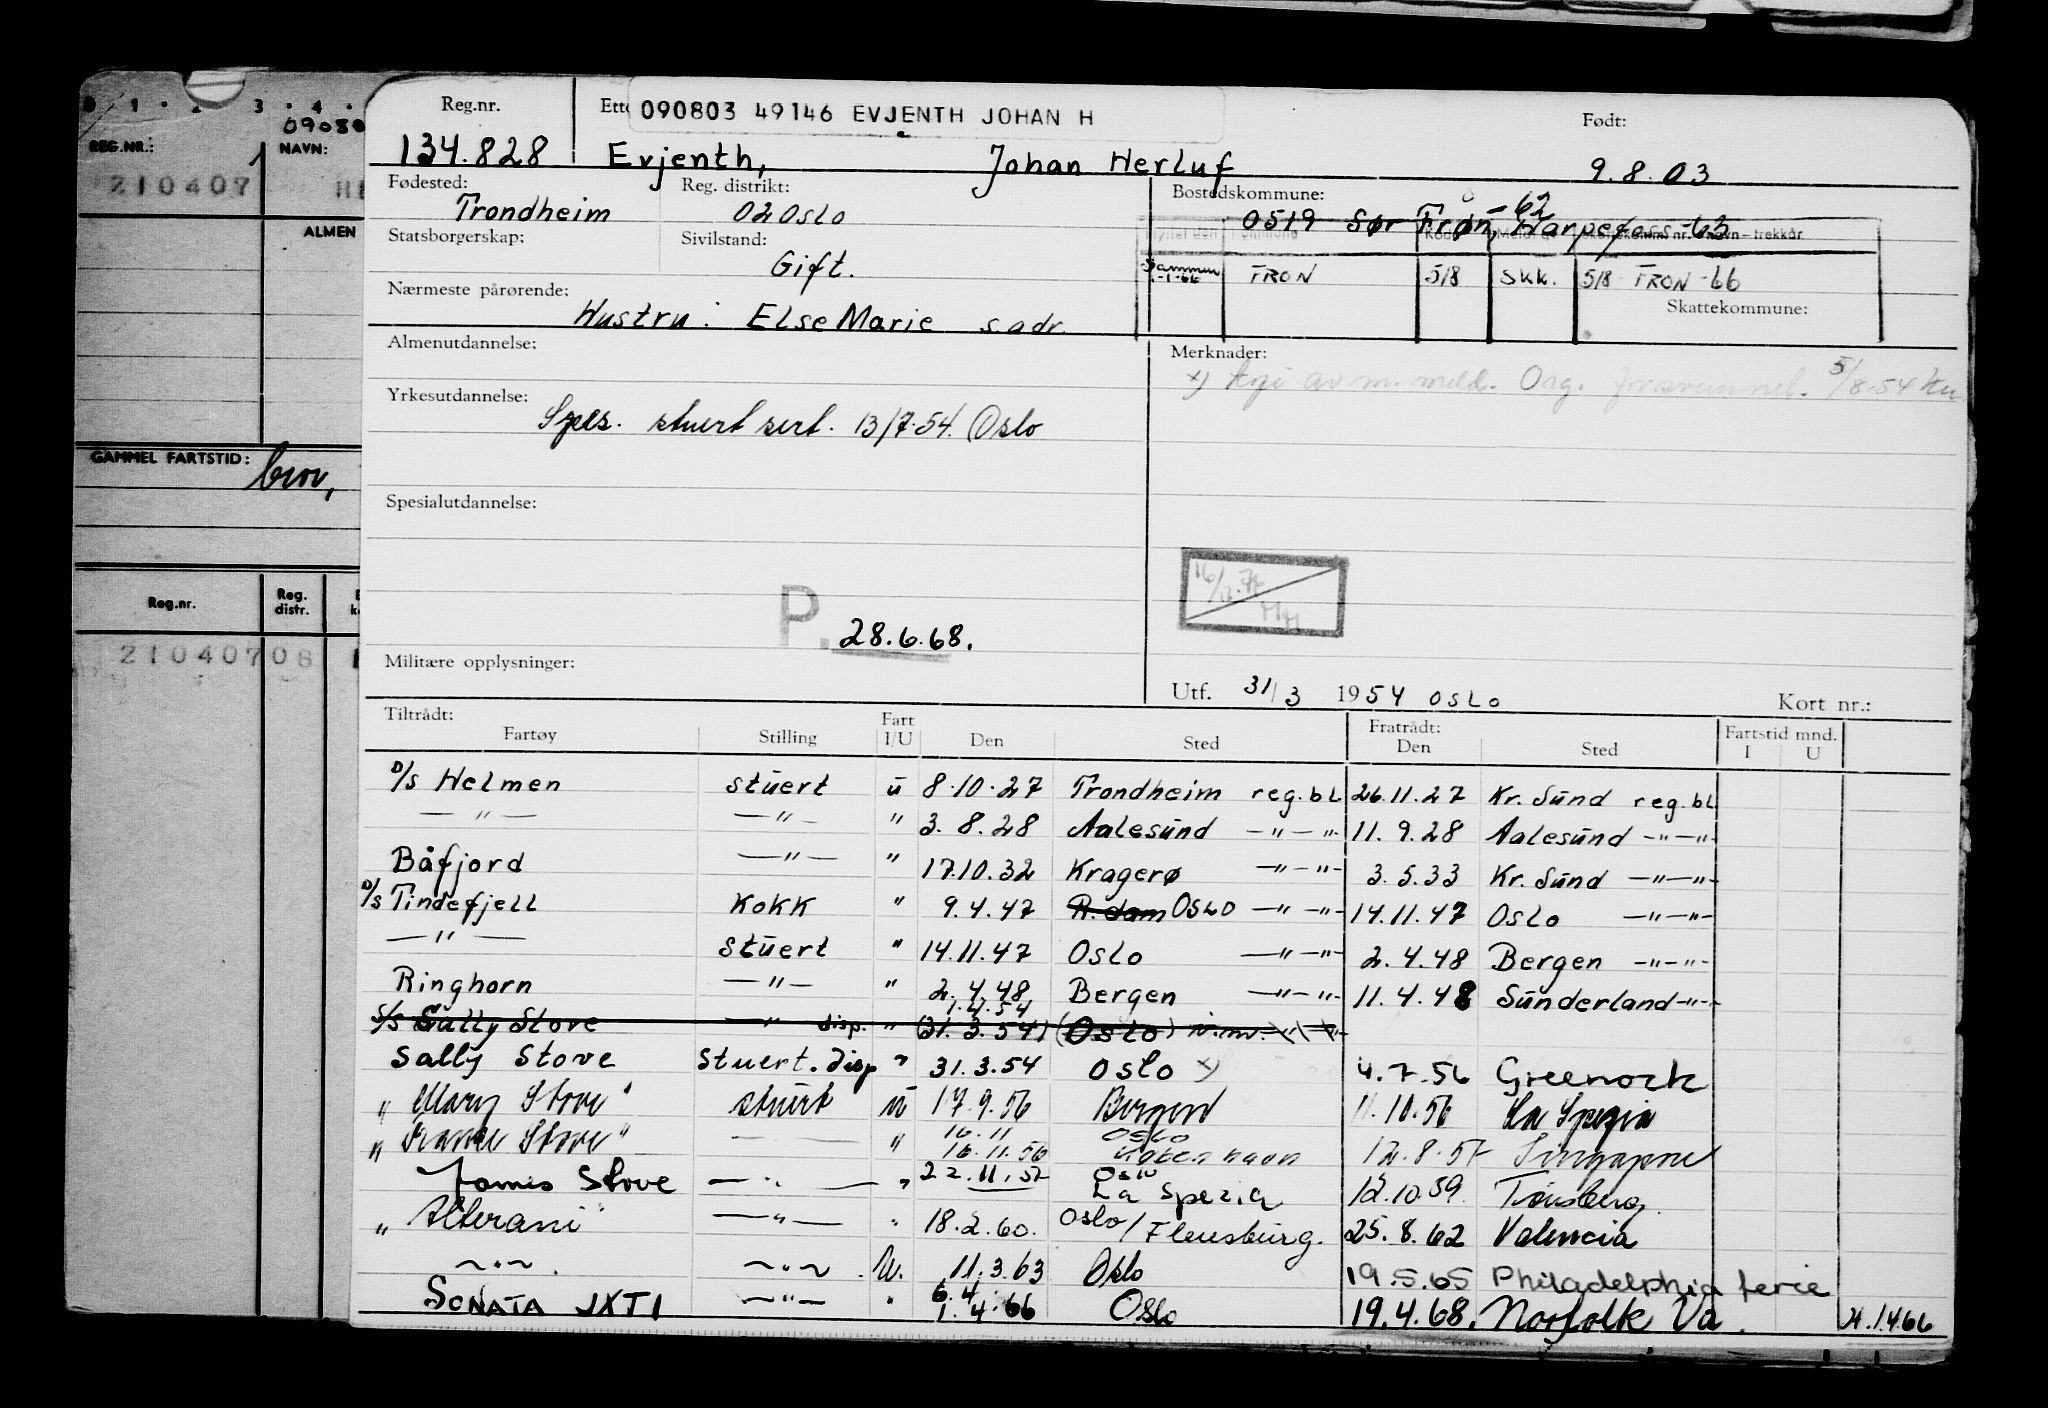 0 · 1 · 2 · 3 · 4 ·
REG.NR.: NAVN:
210407
ALMEN
GAMMEL FARTSTID:
Reg.nr. Reg. distr.
21040708
Reg.nr. Ette 090803 49146 EVJENTH JOHAN H Født:
134.828 Evjenth, Johan Herluf 9.8.03
Fødested: Reg. distrikt: Bostedskommune:
Trondheim 02 Oslo 0519 Sør Fron, -62 Harpefoss -63
Statsborgerskap: Sivilstand:
Gift.
Sammen 1-1-66 FRON 518 SKK. 518 FRON -66
Nærmeste pårørende: Skattekommune:
Hustru: Else Marie s. adr.
Almenutdannelse: Merknader:
x) av m. meld. Org. 5/8.54
Yrkesutdannelse:
Spes. stuert sert. 13/7.54. Oslo
Spesialutdannelse:
P. 28.6.68.
Militære opplysninger:
Utf. 31/3 1954 Oslo Kort nr.:
Tiltrådt: Fart Fratrådt: Fartstid mnd.
Fartøy Stilling I/U Den Sted Den Sted I U
D/S Helmen stuert u 8.10.27 Trondheim reg.bl 26.11.27 Kr.Sund reg.bl
— " — — " — " 3.8.28 Aalesund — " — " - 11.9.28 Aalesund - " — " -
Båfjord — " — " 17.10.32 Kragerø — " — " - 3.5.33 Kr. Sund — " — " -
D/S Tindefjell Kokk " 9.4.47 R.dam Oslo — " — " - 14.11.47 Oslo — " — " -
— " — Stuert " 14.11.47 Oslo — " — " - 2.4.48 Bergen — " — " -
Ringhorn — " — " 2.4.48 Bergen — " — " - 11.4.48 Sunderland - " -
S/S Sally Stove — " disp. " 1.4.54 (31.3.54) (Oslo)
Sally Stove Stuert. disp " 31.3.54 Oslo x) 4.7.56 Greenock
" Mary Stove" stuert u 17.9.56 Bergen 11.10.56 La Spezia
" Stove" " 16.11 Oslo
16.11.56 København 12.8.57 Singapore
James Stove — " — " 22.11.57 Oslo La Spezia 12.10.59. Tønsberg.
" Alterani" — " — " 18.2.60. Oslo / Flensburg. 25.8.62 Valencia
~ " ~ ~ " ~ U. 11.3.63 Oslo 19.5.65 Philadelphia ferie
SONATA JXTI ~ " ~ " 6.4. 1.4.66 Oslo 19.4.68. Norfolk Va. 1.4.66